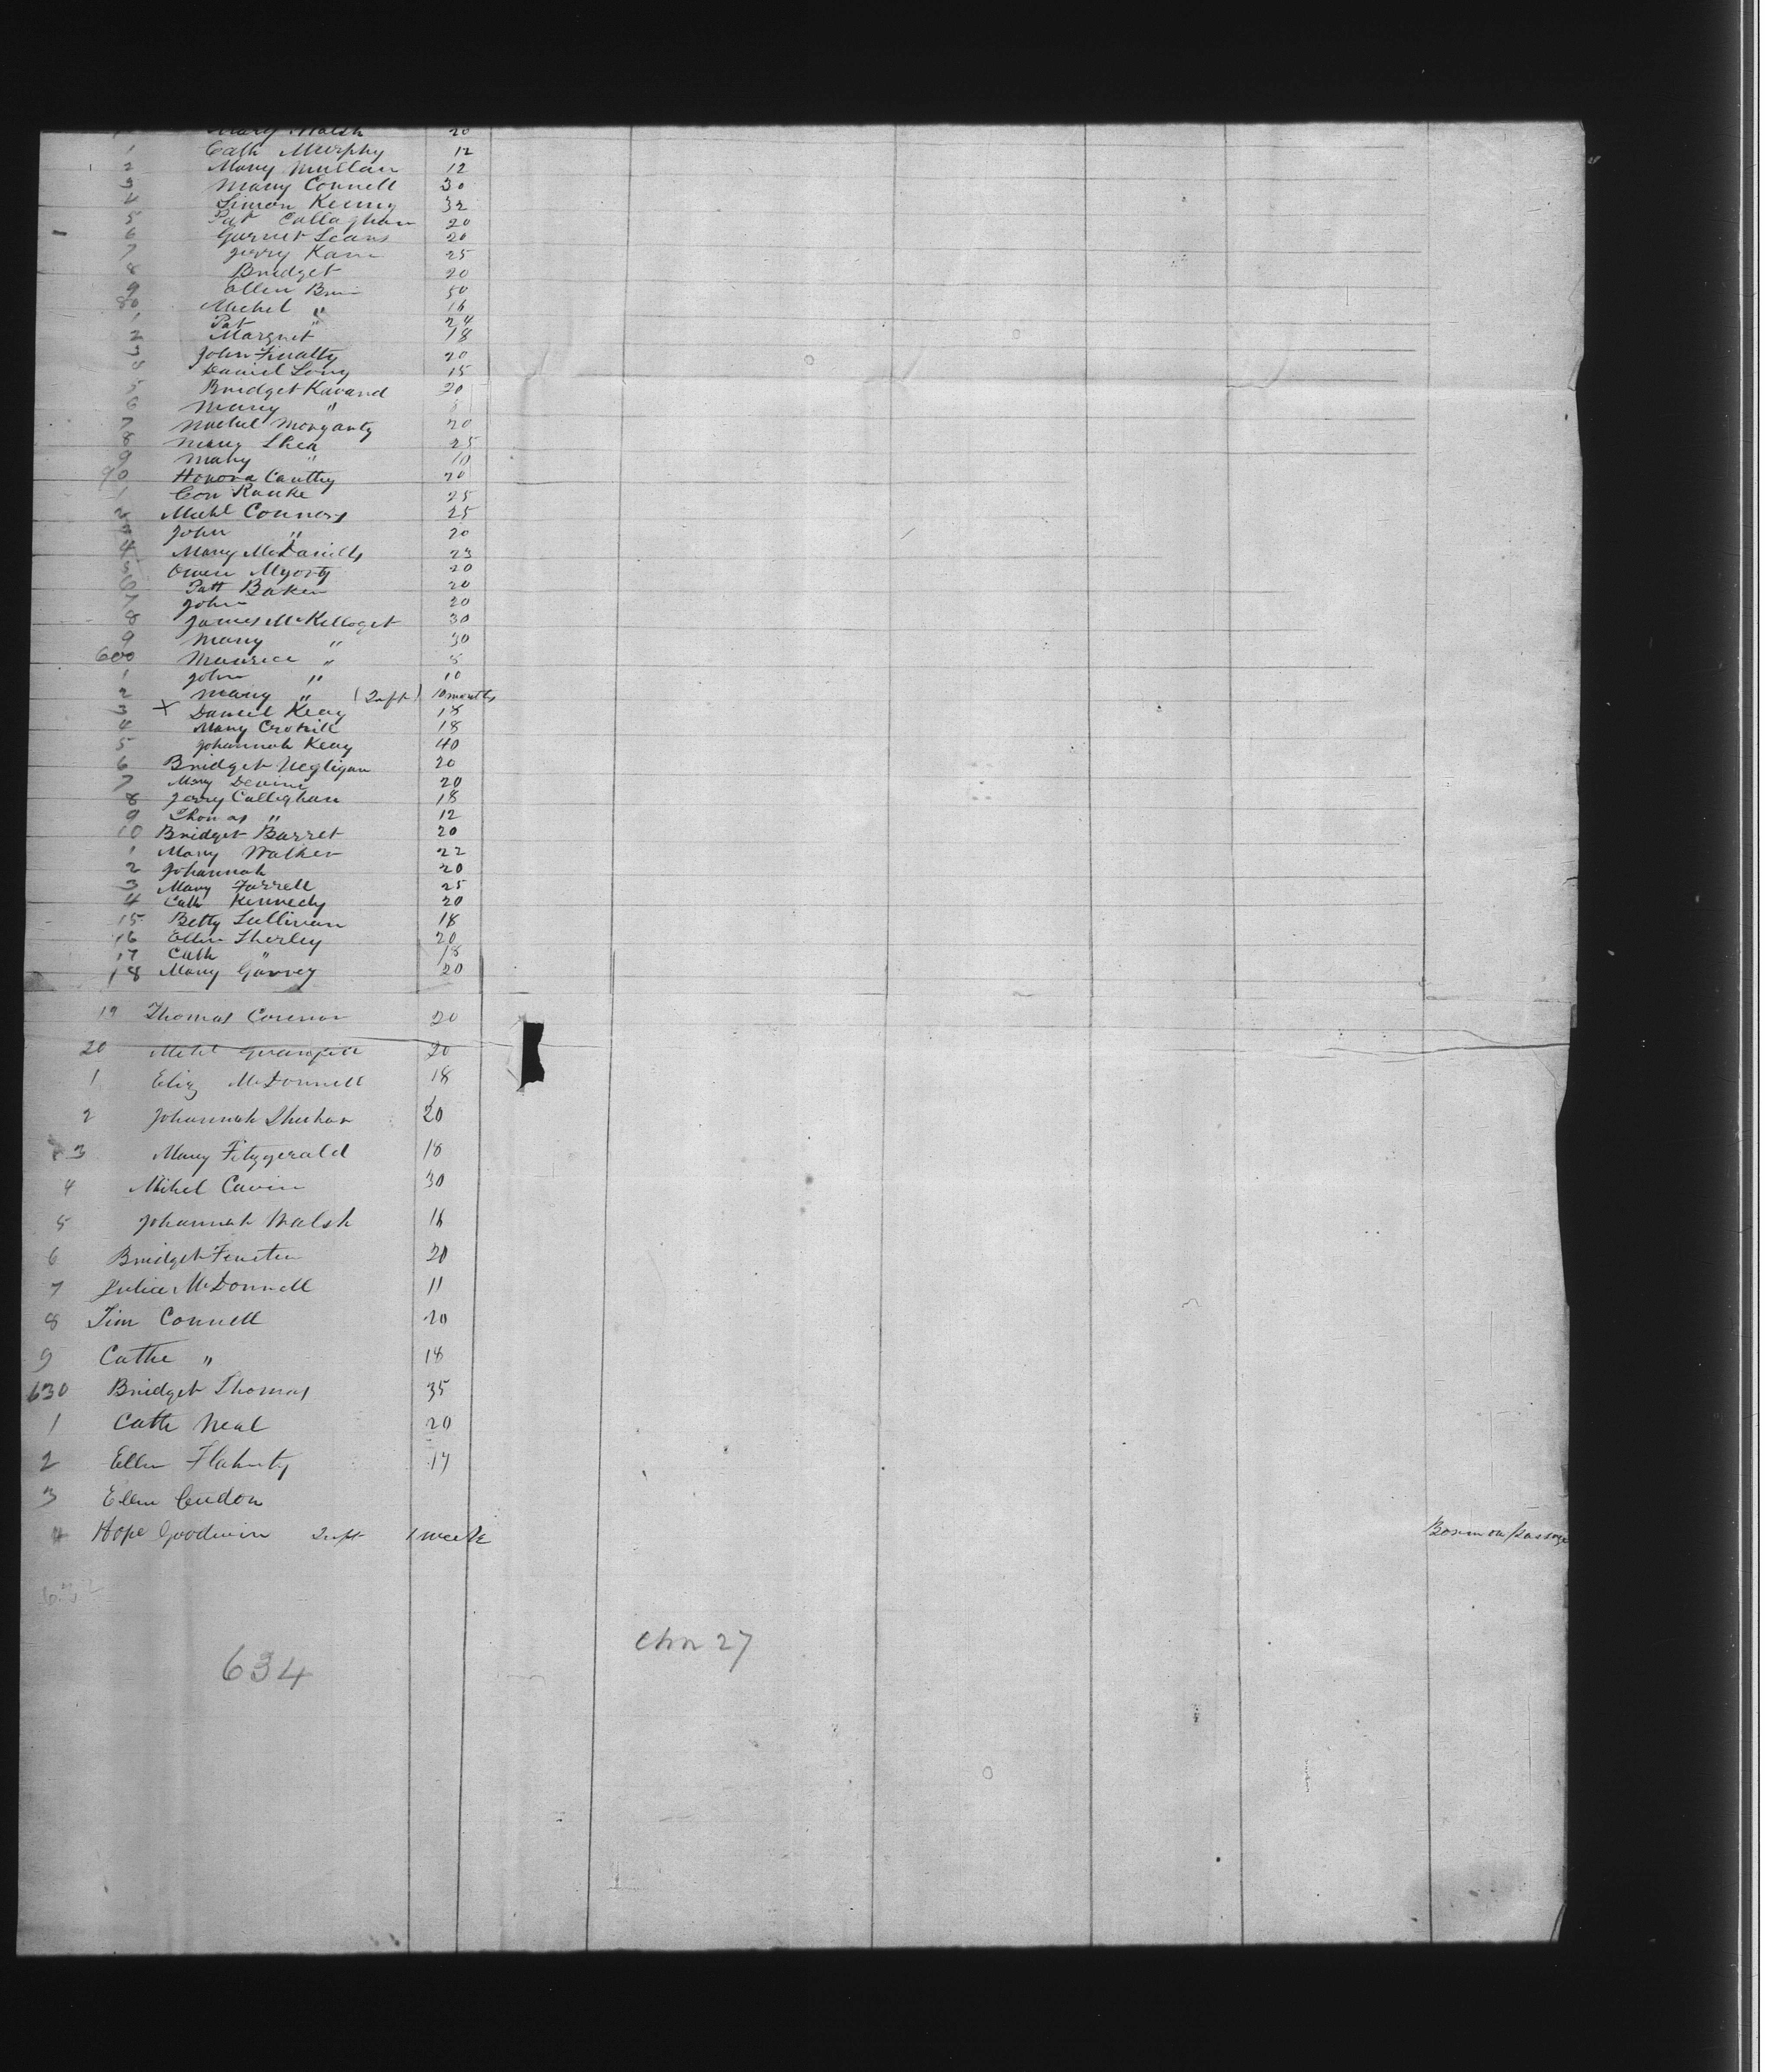 Mary Walsh 20
1 Cath Murphy 12
2 Mary Mullan 12
3 Mary Connell 30
4 Simon Kenny 32
5 Pat Callaghan 20
6 Garnet Scans 20
7 Jerry Kane 25
8 Bridget 20
9 Ellen 50
80 Michel " 16
1 Pat " 24
2 Margret 18
3 John Finalty 20
4 Daniel Long 15
5 Bridget Kavand 20
6 Mary "
7 Michel Morganty 20
8 Mary Shea 25
9 Mary " 10
90 Honora Cauthy 20
1 Con Rauke 25
2 Michl Connors 25
3 John " 20
4 Mary McDaniels 23
5 Owen 20
6 Patt Baker 20
7 John 20
8 James McKelloget 30
9 Mary " 30
600 Maurice " 5
1 John " 10
2 Mary " (Inft) 10 months
3 X Daniel Keay 18
4 Mary 18
5 Johannah Keay 40
6 Bridget Negligan 20
7 Mary Devine 20
8 Jerry Callighan 18
9 Thomas " 12
10 Bridget Barret 20
1 Mary Walker 22
2 Johannah 20
3 Mary Farrell 25
4 Cath Kennedy 20
15 Betty Sullivan 18
16 Ellen Sherley 20
17 Cath " 18
18 Mary Garvey 20
19 Thomas Corenor 20
20 Michl 20
1 Eliz McDonnell 18
2 Johannah Shehan 20
3 Mary Fitzgerald 18
4 Mihel Cavin 30
5 Johannah Walsh 16
6 Bridget Fenster 20
7 Julia McDonnell 11
8 Tim Connell 20
9 Cathe " 18
630 Bridget Thomas 35
1 Cathe Neal 20
2 Ellen Flahnty 17
3 Ellen Cudon
4 Hope Goodwin Inft 1 week Born on Passage
632
634
27